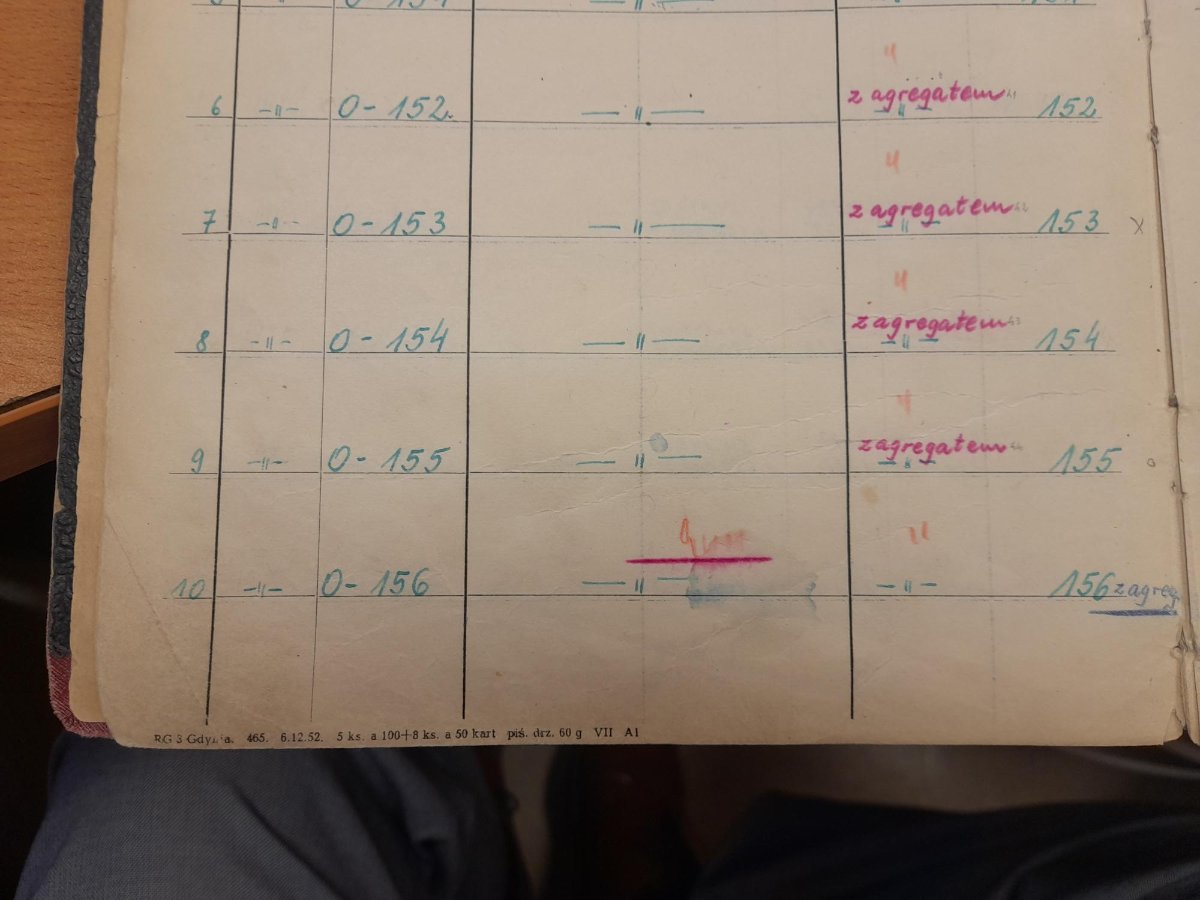 6 —„— 0-152. —„— z agregatem —„— 152
7 —„— 0-153 —„— z agregatem —„— 153 x
8 —„— 0-154 —„— z agregatem —„— 154
9 —„— 0-155 —„— z agregatem —„— 155
10 —„— 0-156 —„— —„— 156 z agreg
RG 3 Gdynia. 465. 6.12.52. 5 ks. a 100+8 ks. a 50 kart piś. drz. 60 g VII A1